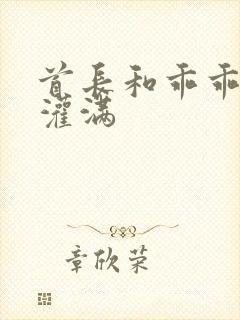 首长和乖乖
灌满
章欣荣